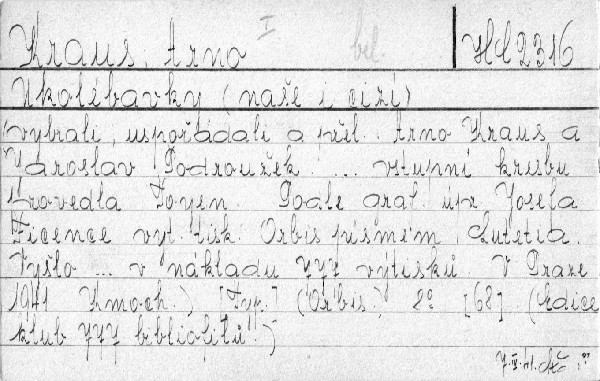 Kraus, Arno I bel. Hd 2316
Ukolébavky (naše i cizí)
vybrali, uspořádali a přel. Arno Kraus a
Jaroslav Podroužek. ... vstupní kresbu
provedla Toyen. Podle graf. úpr. Josefa
Ficence vyt. tisk. Orbis písmem Lutetia.
Vyšlo ... v nákladu 777 výtisků. V Praze
1941 Kmoch.) [Typ.] (Orbis.) 2° [68] (Edice
klub 777 bibliofilů.)